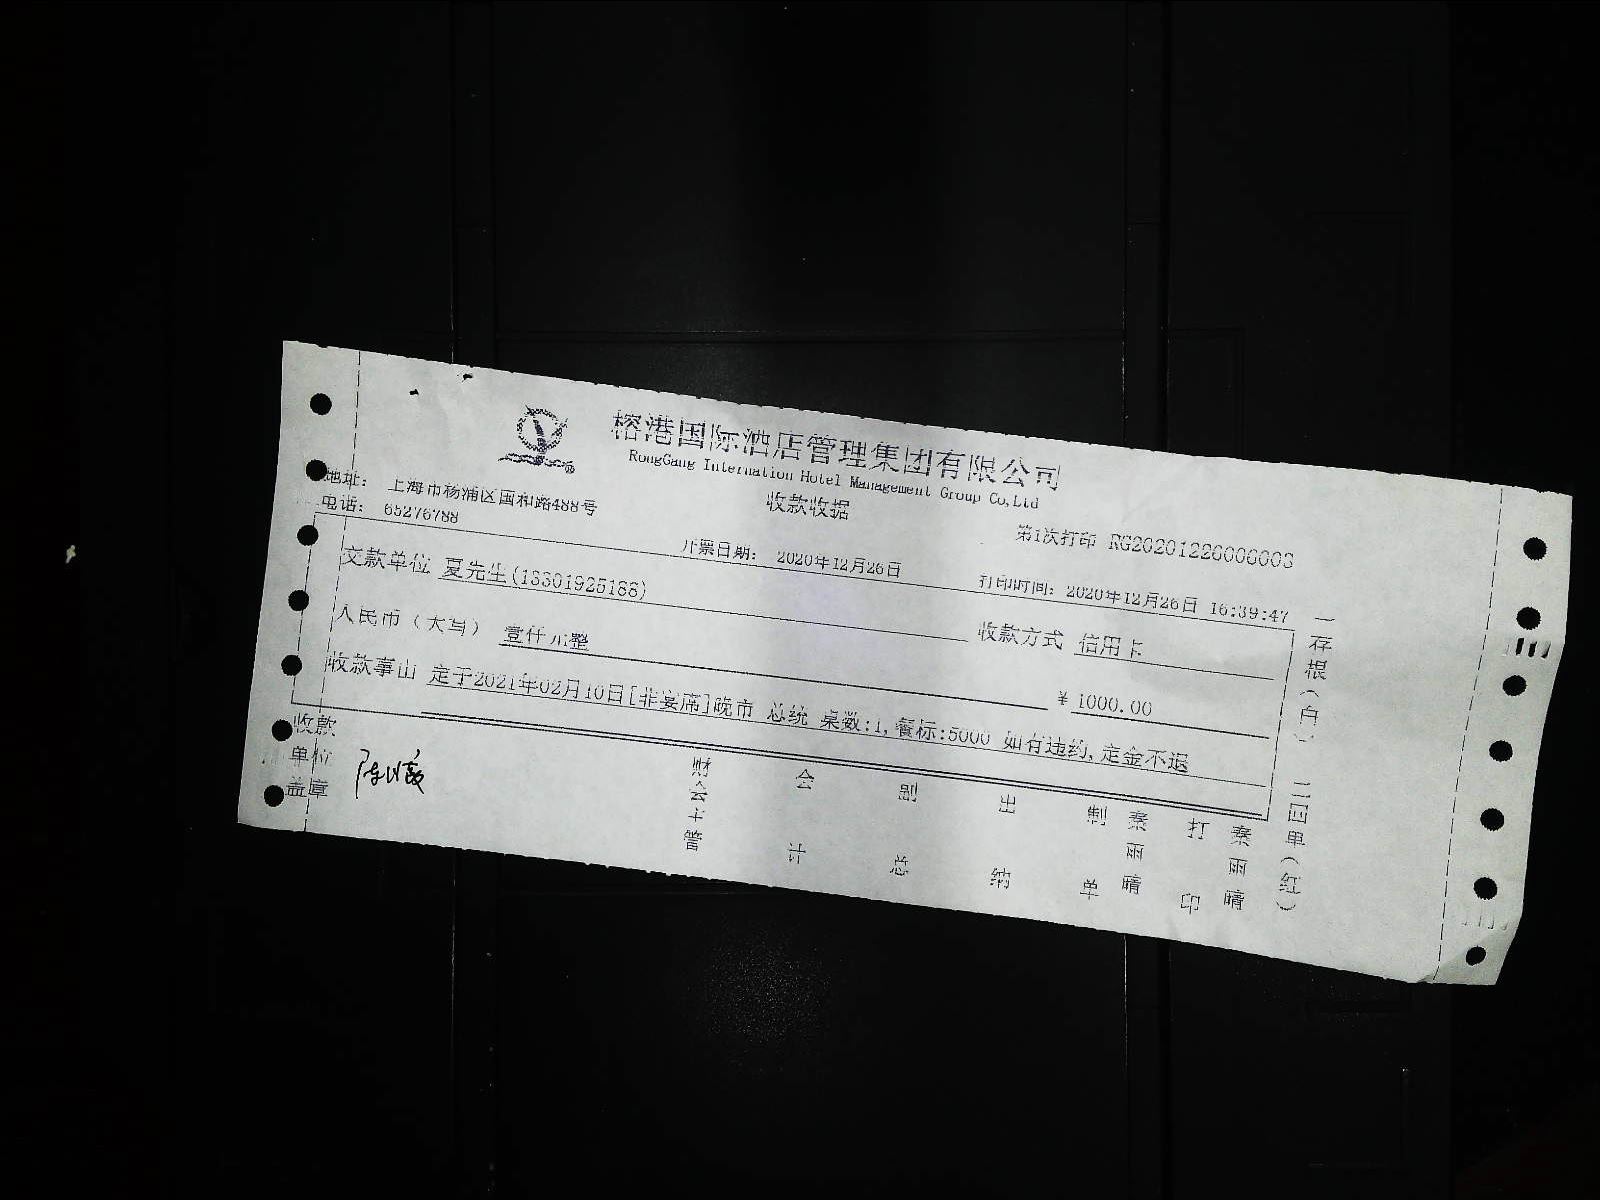 榕港国际酒店管理集团有限公司
RongGang Internation Hotel Management Group Co,Ltd
收款收据
地址: 上海市杨浦区国和路488号
电话: 65276788
第1次打印 RG20201226000003
开票日期: 2020年12月26日
打印时间: 2020年12月26日 16:39:47
交款单位 夏先生(13301925188)
收款方式 信用卡
人民币(大写) 壹仟元整
¥ 1000.00
收款事由 定于2021年02月10日[非宴席]晚市 总统 桌数:1,餐标:5000 如有违约,定金不退
收款单位盖章
财会主管
会计
总
出纳
制单
秦雨晴
打印
秦雨晴
一存根(白) 二回单(红)